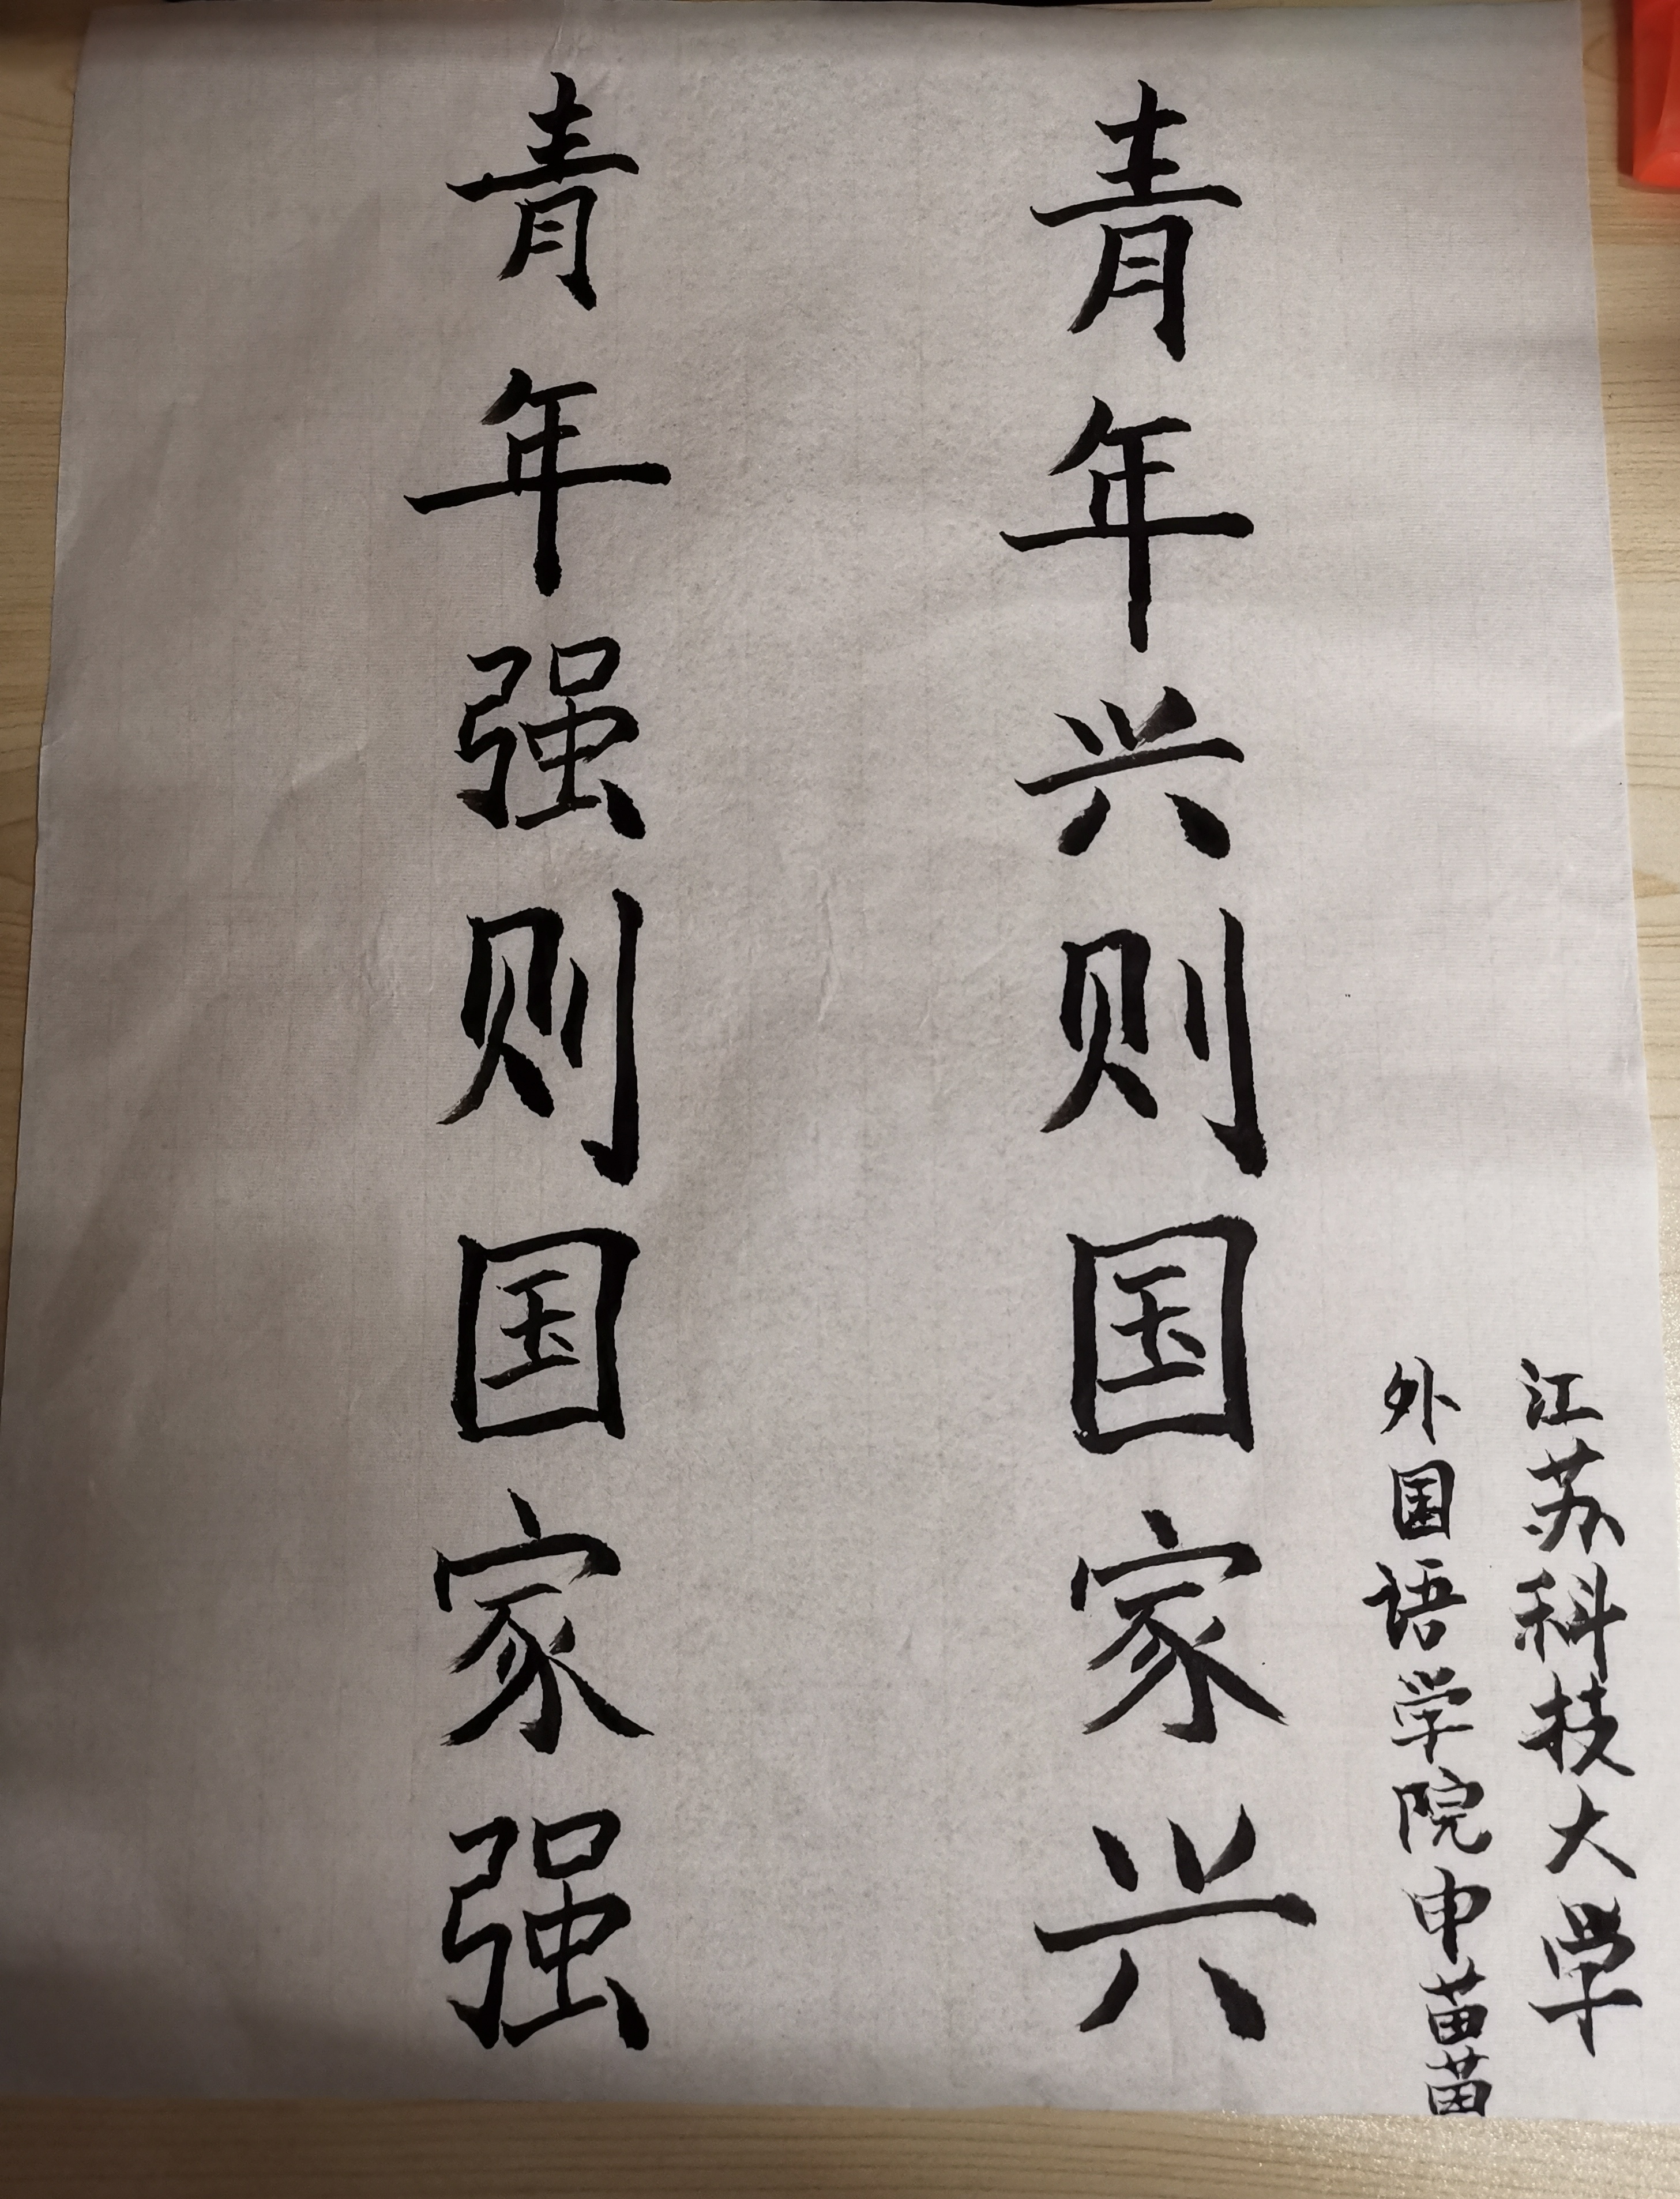 江苏科技大学
外国语学院申苗苗
青年兴则国家兴
青年强则国家强